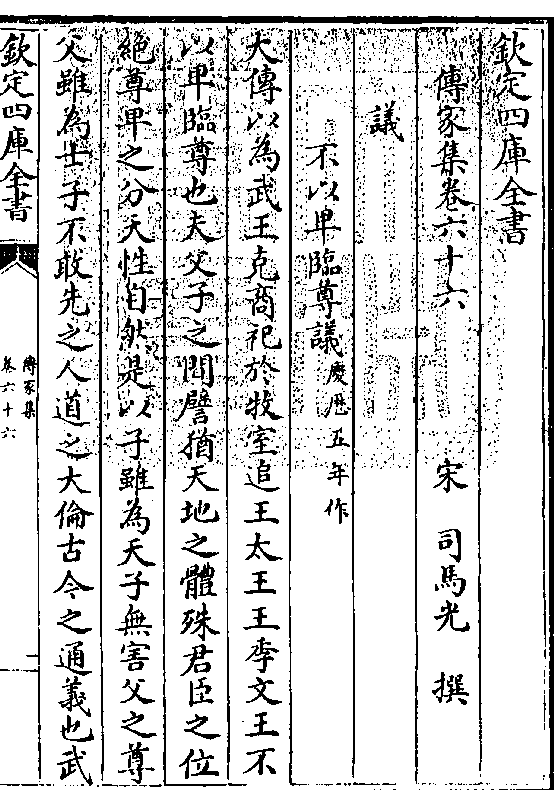 欽定四庫全書
傳家集卷六十六　宋　司馬光　撰
議
不以卑臨尊議慶厯五年作
大傳以為武王克商祀於牧室追王太王王季文王不
以卑臨尊也夫父子之間譬猶天地之體殊君臣之位
絕尊卑之分天性自然是以子雖為天子無害父之尊
父雖為士子不敢先之人道之大倫古今之通義也武
欽定四庫全書
傳家集
卷六十六
一